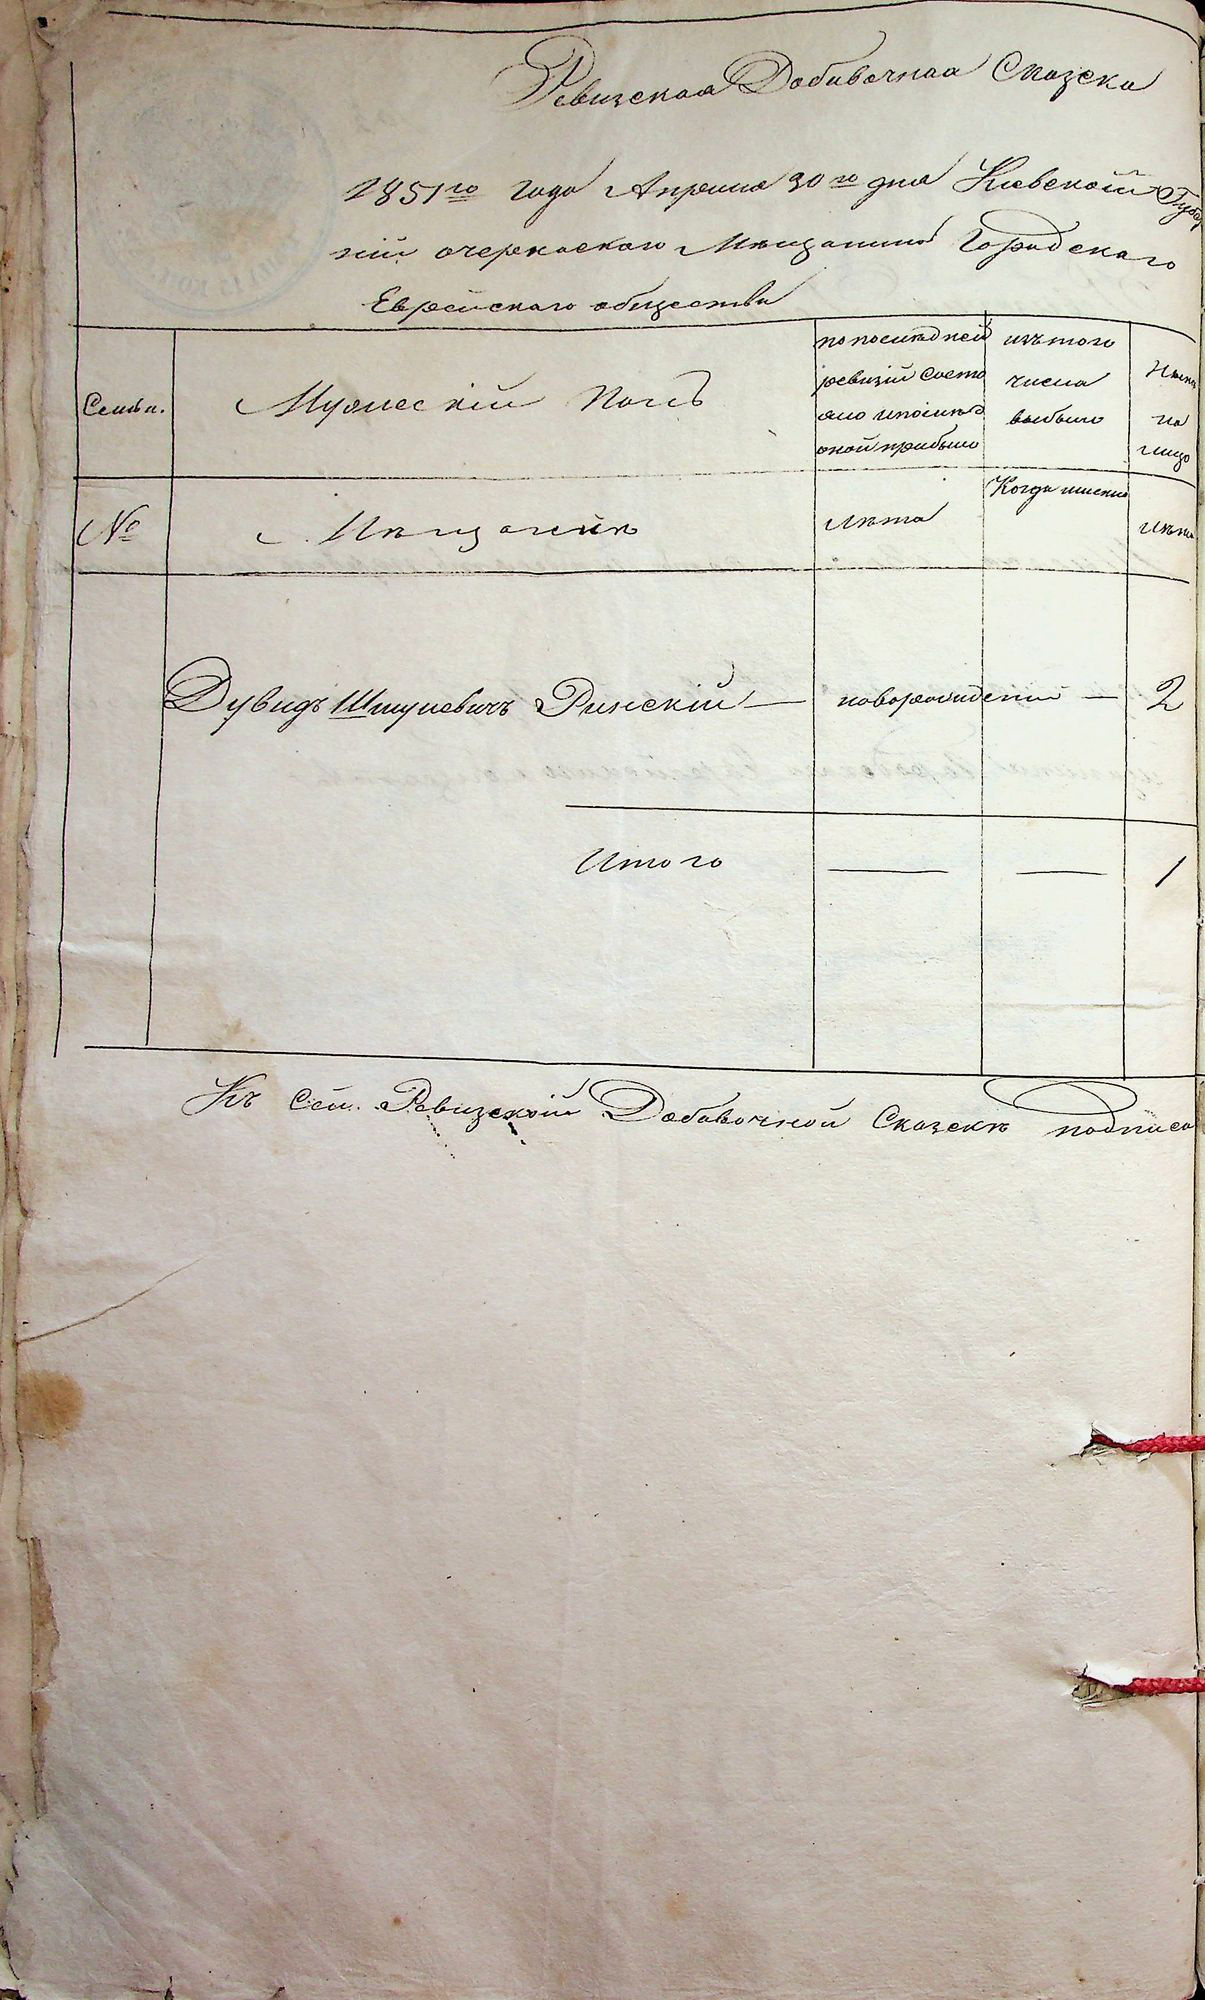 Ревизская Добавочная Сказска
1851го года Апреля 30го дня Киевской Губер
ніи очеркаского Мѣщанина Городскаго
Еврейскаго общества
Семьи.
Мужескій Полъ
по послѣдней
ревизіи состо
яло и послѣ
оной прибыло
изъ того
числа
выбыло
Нынѣ
на
лицо
№
Мѣщанинъ
Лѣта
Когда именно
Лѣта
Дувидъ Шмулевичъ Ринскій — новорожденій — 2
Итого — — 1
Къ Сей Ревизской Добавочной Сказскѣ подписа